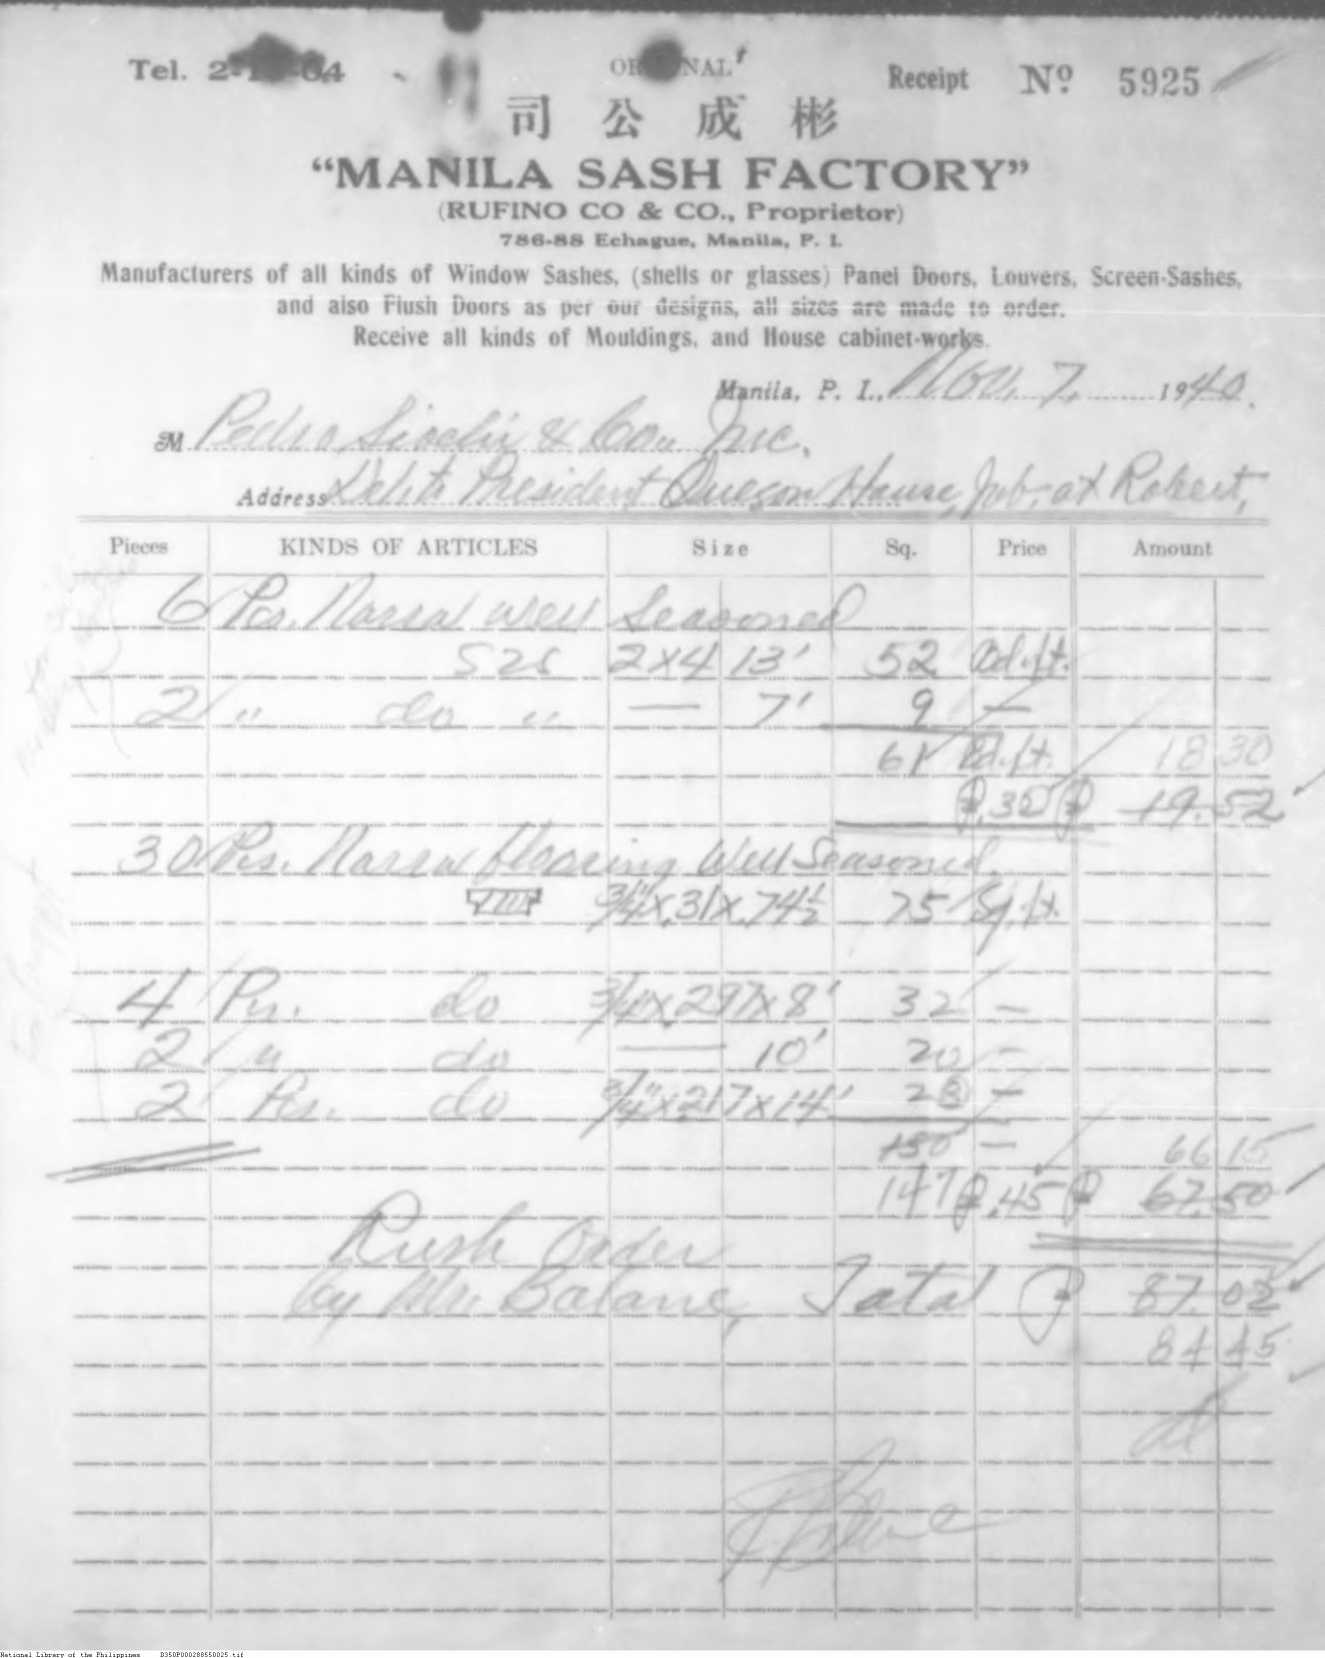 Tel. 2-
ORIGINAL
Receipt Nº 5925
司公成彬
“MANILA SASH FACTORY”
(RUFINO CO & CO., Proprietor)
786-88 Echague, Manila, P. I.
Manufacturers of all kinds of Window Sashes, (shells or glasses) Panel Doors, Louvers, Screen-Sashes,
and also Flush Doors as per our designs, all sizes are made to order.
Receive all kinds of Mouldings, and House cabinet-works.
Manila, P. I., Nov. 7, 1940.
M Pedro Siochi & Co., Inc.
Address Debit President Quezon House, Job, at Robert,
Pieces KINDS OF ARTICLES Size Sq. Price Amount
6 Pcs. Narra well Seasoned
S2S 2x4 13' 52 Bd.ft.
2 " do " — 7' 9 —
61 Bd.ft. 18 30
₱.32 ₱ 19.52
30 Pcs. Narra flooring Well Seasoned.
3/4"x.31x.74½ 75 Sq.ft.
4 Pcs. do 3/4"x.297x8' 32 —
2 " do — 10' 20 —
2 Pcs. do 3/4"x217x14' 23 —
150 — 66 15
147 ₱.45 ₱ 67.50
Rush Order
by Mr. Balane, Total ₱ 87.02
84 45